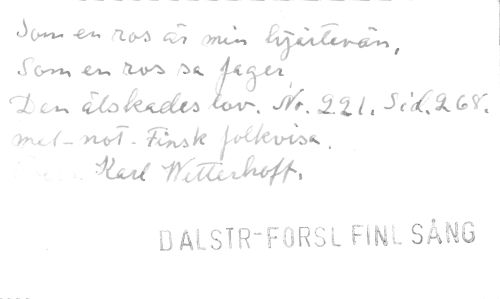 Som en ros är min hjärtevän,
Som en ros så fager
Den älskades lov. Nr. 221. Sid. 268.
mel-not. Finsk folkvisa.
Karl Wetterhoff.
DALSTR-FORSL FINL SÅNG